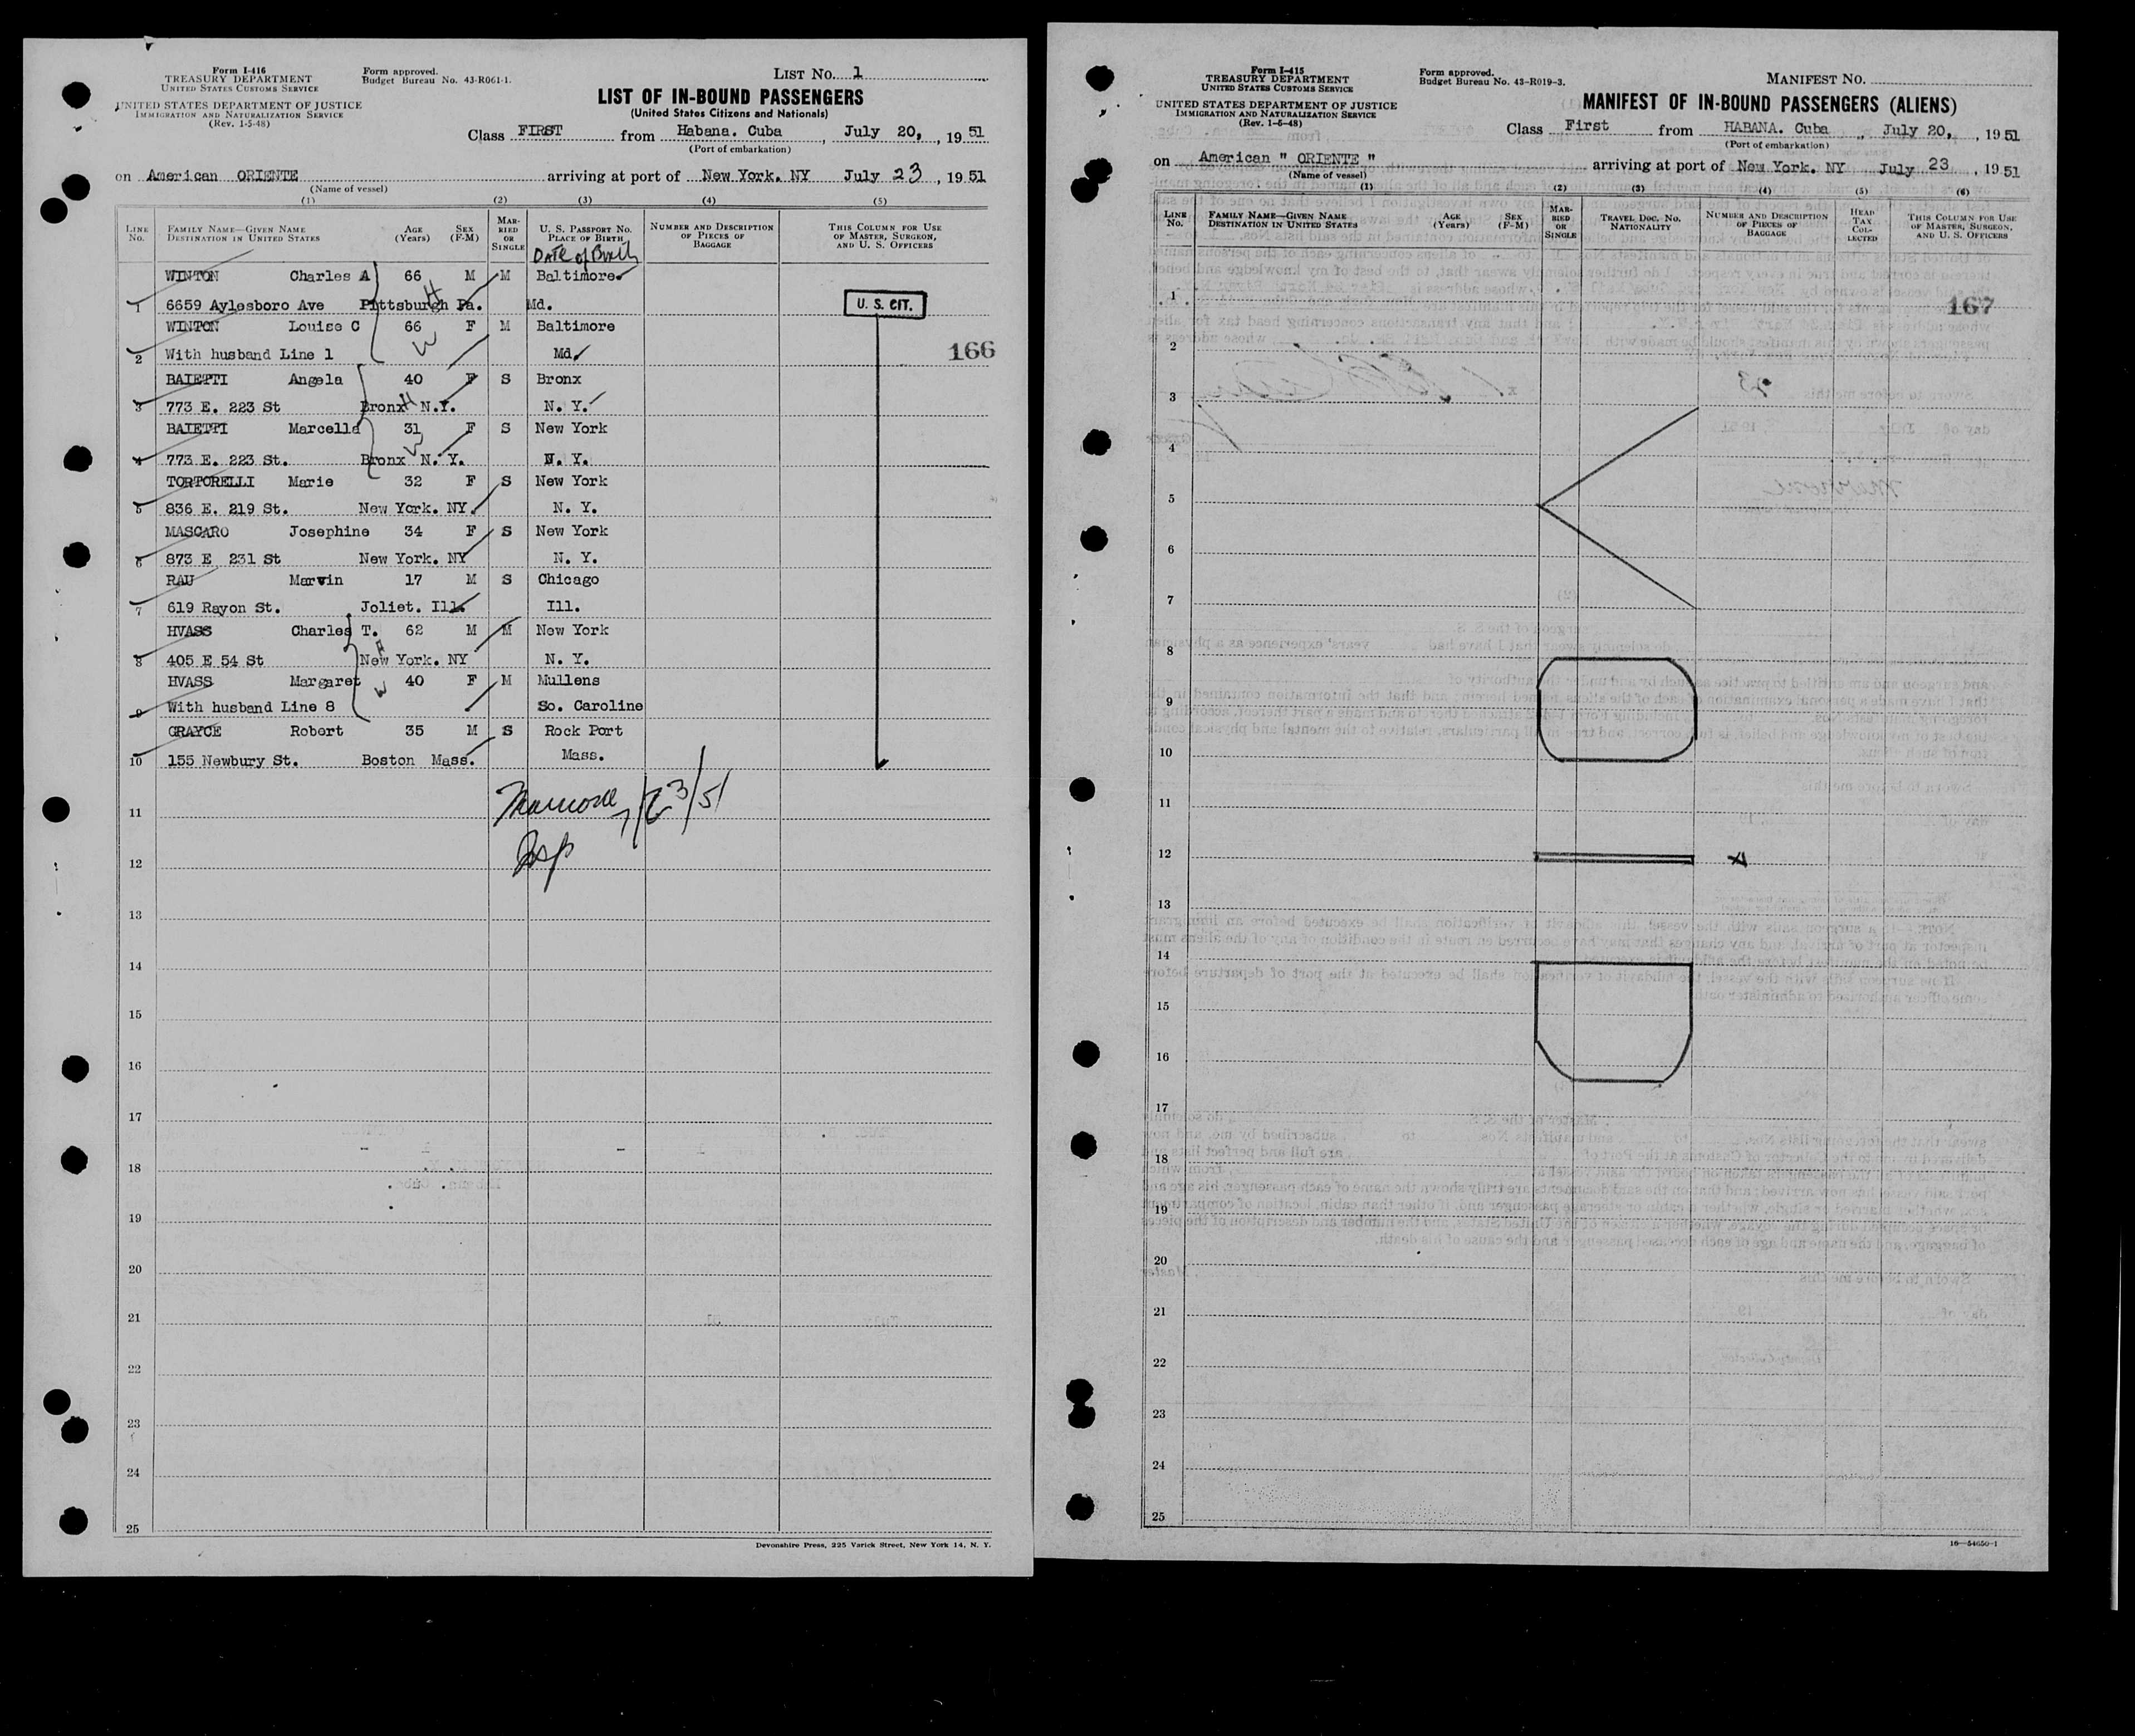 Form I-416
TREASURY DEPARTMENT
UNITED STATES CUSTOMS SERVICE
UNITED STATES DEPARTMENT OF JUSTICE
IMMIGRATION AND NATURALIZATION SERVICE
(Rev. 1-5-48)
Form approved.
Budget Bureau No. 43-R061-1.
LIST No. 1
LIST OF IN-BOUND PASSENGERS
(United States Citizens and Nationals)
Class FIRST from Habana. Cuba, July 20, , 19 51
(Port of embarkation)
on American ORIENTE arriving at port of New York. NY July 23 , 19 51
(Name of vessel)
(1) (2) (3) (4) (5)
LINE No. FAMILY NAME—GIVEN NAME DESTINATION IN UNITED STATES AGE (Years) SEX (F-M) MARRIED OR SINGLE U. S. PASSPORT NO. PLACE OF BIRTH NUMBER AND DESCRIPTION OF PIECES OF BAGGAGE THIS COLUMN FOR USE OF MASTER, SURGEON, AND U. S. OFFICERS
Date of Birth
WINTON Charles A 66 M M Baltimore
1 6659 Aylesboro Ave Pittsburgh Pa. Md. U. S. CIT.
WINTON Louise C 66 F M Baltimore
2 With husband Line 1 Md. 166
BAIETTI Angela 40 F S Bronx
3 773 E. 223 St Bronx N.Y. N. Y.
BAIETTI Marcella 31 F S New York
4 773 E. 223 St. Bronx N. Y. N. Y.
TORTORELLI Marie 32 F S New York
5 836 E. 219 St. New York. NY. N. Y.
MASCARO Josephine 34 F S New York
6 873 E 231 St New York. NY N. Y.
RAU Marvin 17 M S Chicago
7 619 Rayon St. Joliet. Ill. Ill.
HVASS Charles T. 62 M M New York
8 405 E 54 St New York. NY N. Y.
HVASS Margaret 40 F M Mullens
9 With husband Line 8 So. Caroline
GRAYCE Robert 35 M S Rock Port
10 155 Newbury St. Boston Mass. Mass.
11 7/23/51
12 Insp
13
14
15
16
17
18
19
20
21
22
23
24
25
Devonshire Press, 225 Varick Street, New York 14, N. Y.
Form I-415
TREASURY DEPARTMENT
UNITED STATES CUSTOMS SERVICE
UNITED STATES DEPARTMENT OF JUSTICE
IMMIGRATION AND NATURALIZATION SERVICE
(Rev. 1-5-48)
Form approved.
Budget Bureau No. 43-R019-3.
MANIFEST No.
MANIFEST OF IN-BOUND PASSENGERS (ALIENS)
Class First from HABANA. Cuba , July 20, , 19 51
(Port of embarkation)
on American " ORIENTE " arriving at port of New York. NY July 23 , 19 51
(Name of vessel)
(1) (2) (3) (4) (5) (6)
LINE No. FAMILY NAME—GIVEN NAME DESTINATION IN UNITED STATES AGE (Years) SEX (F-M) MARRIED OR SINGLE TRAVEL DOC. NO. NATIONALITY NUMBER AND DESCRIPTION OF PIECES OF BAGGAGE HEAD TAX COLLECTED THIS COLUMN FOR USE OF MASTER, SURGEON, AND U. S. OFFICERS
1 167
2
3
4
5
6
7
8
9
10
11
12
13
14
15
16
17
18
19
20
21
22
23
24
25
16—54650-1